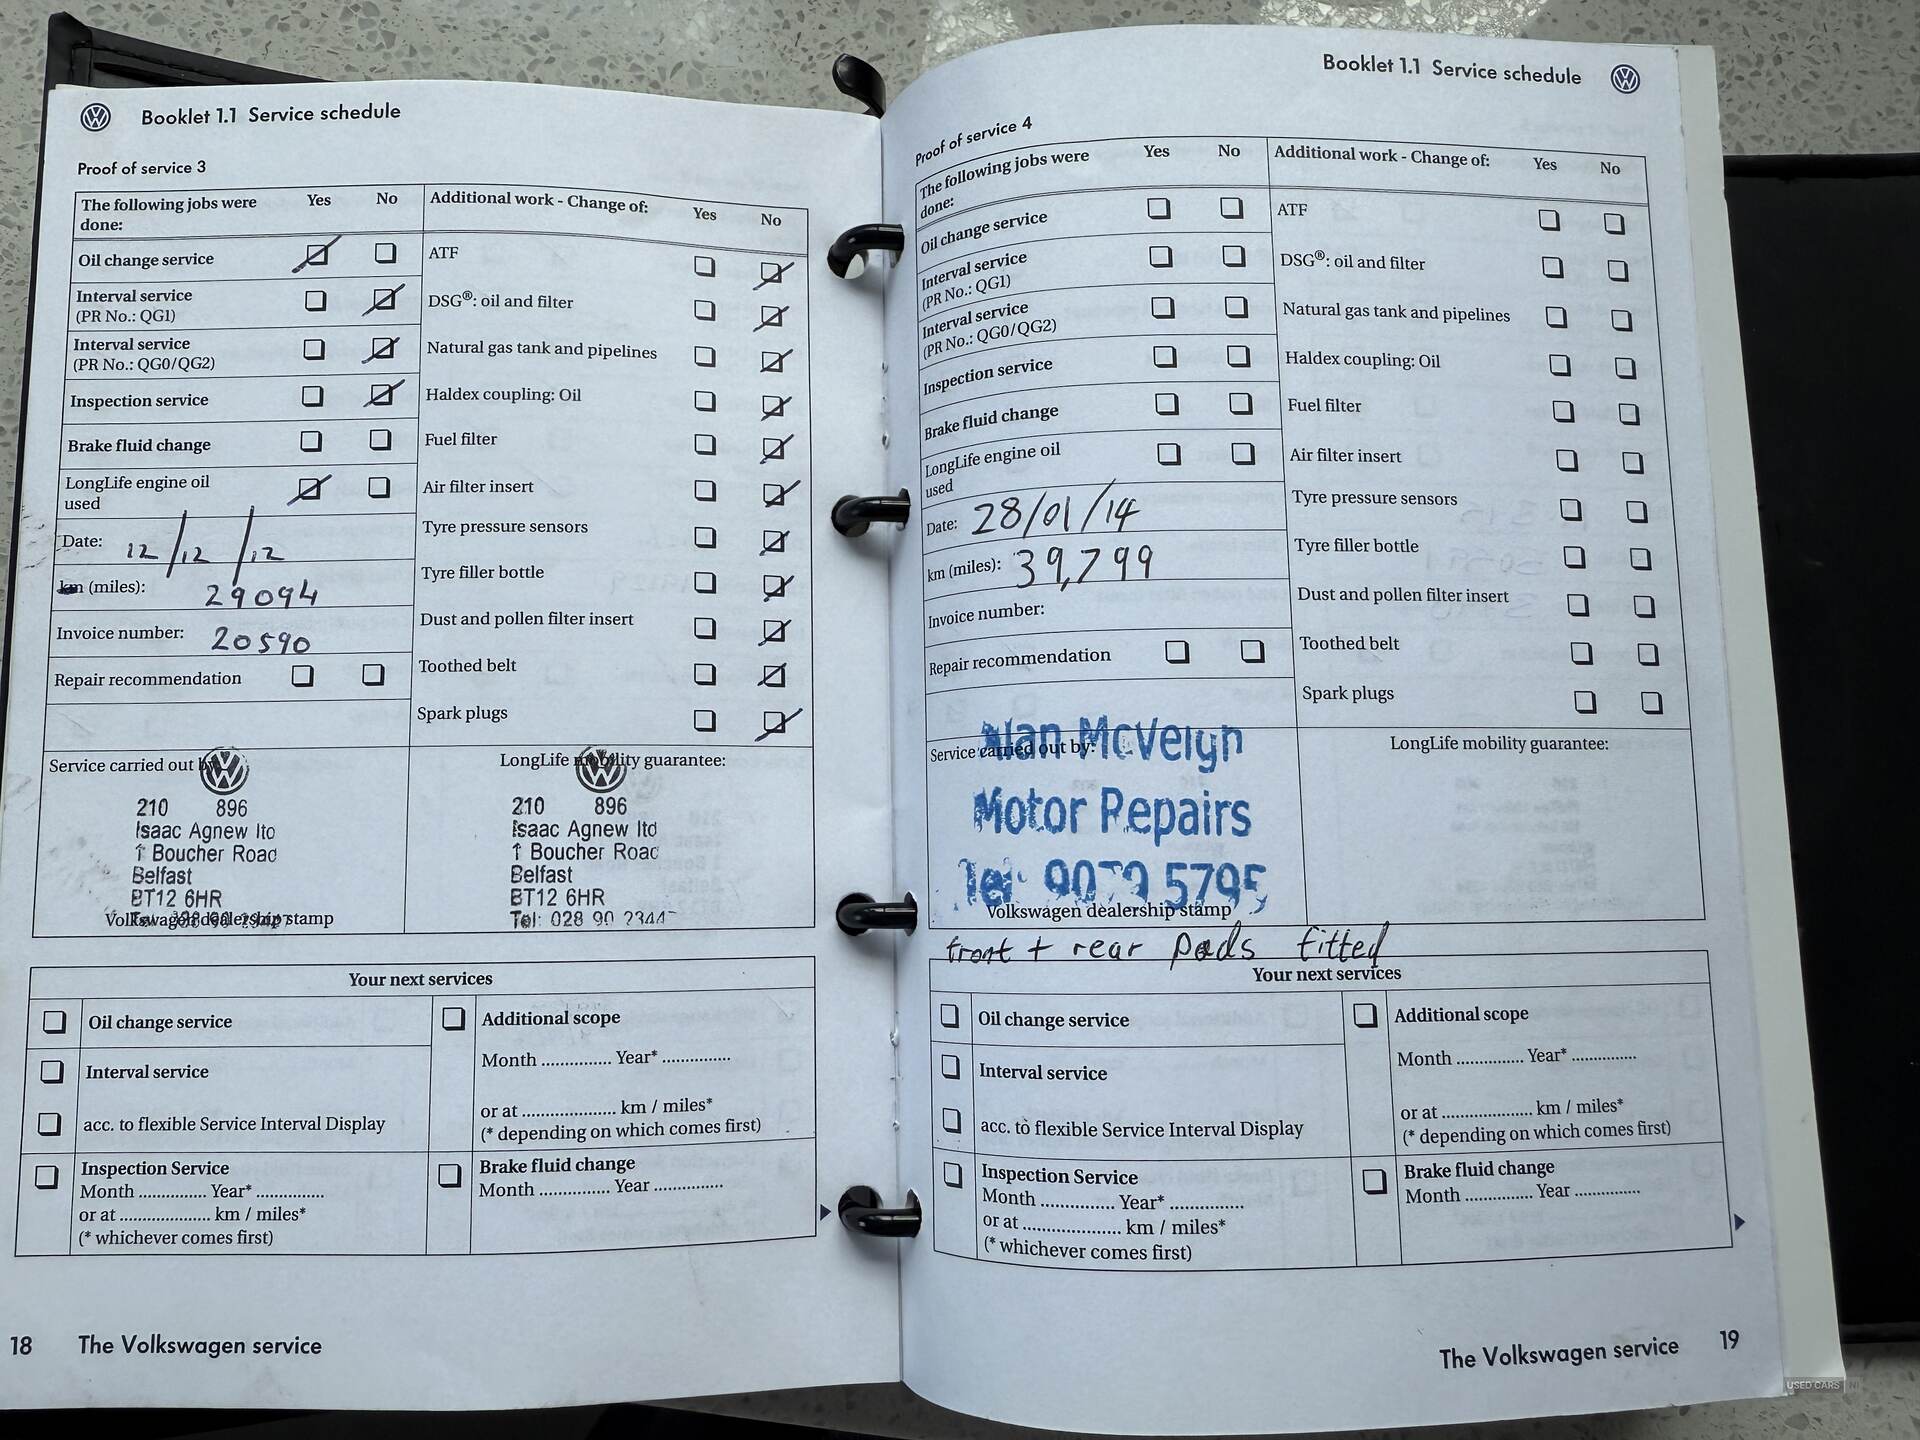 Booklet 1.1 Service schedule
Proof of service 3
The following jobs were done: Yes No
Oil change service
Interval service
(PR No.: QG1)
Interval service
(PR No.: QG0/QG2)
Inspection service
Brake fluid change
LongLife engine oil
used
Date: 12/12/12
km (miles): 29094
Invoice number: 20590
Repair recommendation
Additional work - Change of: Yes No
ATF
DSG®: oil and filter
Natural gas tank and pipelines
Haldex coupling: Oil
Fuel filter
Air filter insert
Tyre pressure sensors
Tyre filler bottle
Dust and pollen filter insert
Toothed belt
Spark plugs
Service carried out by:
210 896
Isaac Agnew ltd
1 Boucher Road
Belfast
BT12 6HR
Volkswagen dealership stamp
LongLife mobility guarantee:
210 896
Isaac Agnew ltd
1 Boucher Road
Belfast
BT12 6HR
Tel: 028 90 2344
Your next services
Oil change service
Interval service
acc. to flexible Service Interval Display
Inspection Service
Month ............... Year* ...............
or at .................... km / miles*
(* whichever comes first)
Additional scope
Month ............... Year* ...............
or at .................... km / miles*
(* depending on which comes first)
Brake fluid change
Month ............... Year ...............
18 The Volkswagen service
Booklet 1.1 Service schedule
Proof of service 4
The following jobs were
done: Yes No
Oil change service
Interval service
(PR No.: QG1)
Interval service
(PR No.: QG0/QG2)
Inspection service
Brake fluid change
LongLife engine oil
used
Date: 28/01/14
km (miles): 39,799
Invoice number:
Repair recommendation
Additional work - Change of: Yes No
ATF
DSG®: oil and filter
Natural gas tank and pipelines
Haldex coupling: Oil
Fuel filter
Air filter insert
Tyre pressure sensors
Tyre filler bottle
Dust and pollen filter insert
Toothed belt
Spark plugs
Service carried out by:
Alan McVeigh
Motor Repairs
Tel: 9079 5795
Volkswagen dealership stamp
LongLife mobility guarantee:
front + rear pads fitted
Your next services
Oil change service
Interval service
acc. to flexible Service Interval Display
Inspection Service
Month ............... Year* ...............
or at .................... km / miles*
(* whichever comes first)
Additional scope
Month ............... Year* ...............
or at .................... km / miles*
(* depending on which comes first)
Brake fluid change
Month ............... Year ...............
The Volkswagen service 19
USED CARS NI